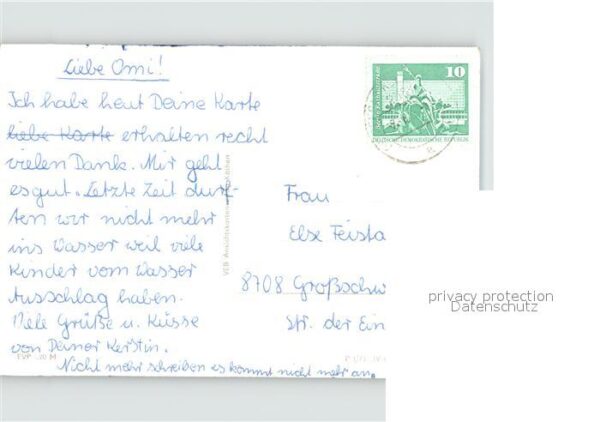 Liebe Omi!
Ich habe heut Deine Karte
liebe Karte erhalten recht
vielen Dank. Mir geht
es gut. Letzte Zeit durf-
ten wir nicht mehr
ins Wasser weil viele
Kinder vom Wasser
Ausschlag haben.
Viele Grüße u. Küsse
von Deiner Kerstin.
Nicht mehr schreiben es kommt nicht mehr an.
10
DEUTSCHE DEMOKRATISCHE REPUBLIK
Frau
Else Feista
8708 Großschw
Str. der Ein
privacy protection
Datenschutz